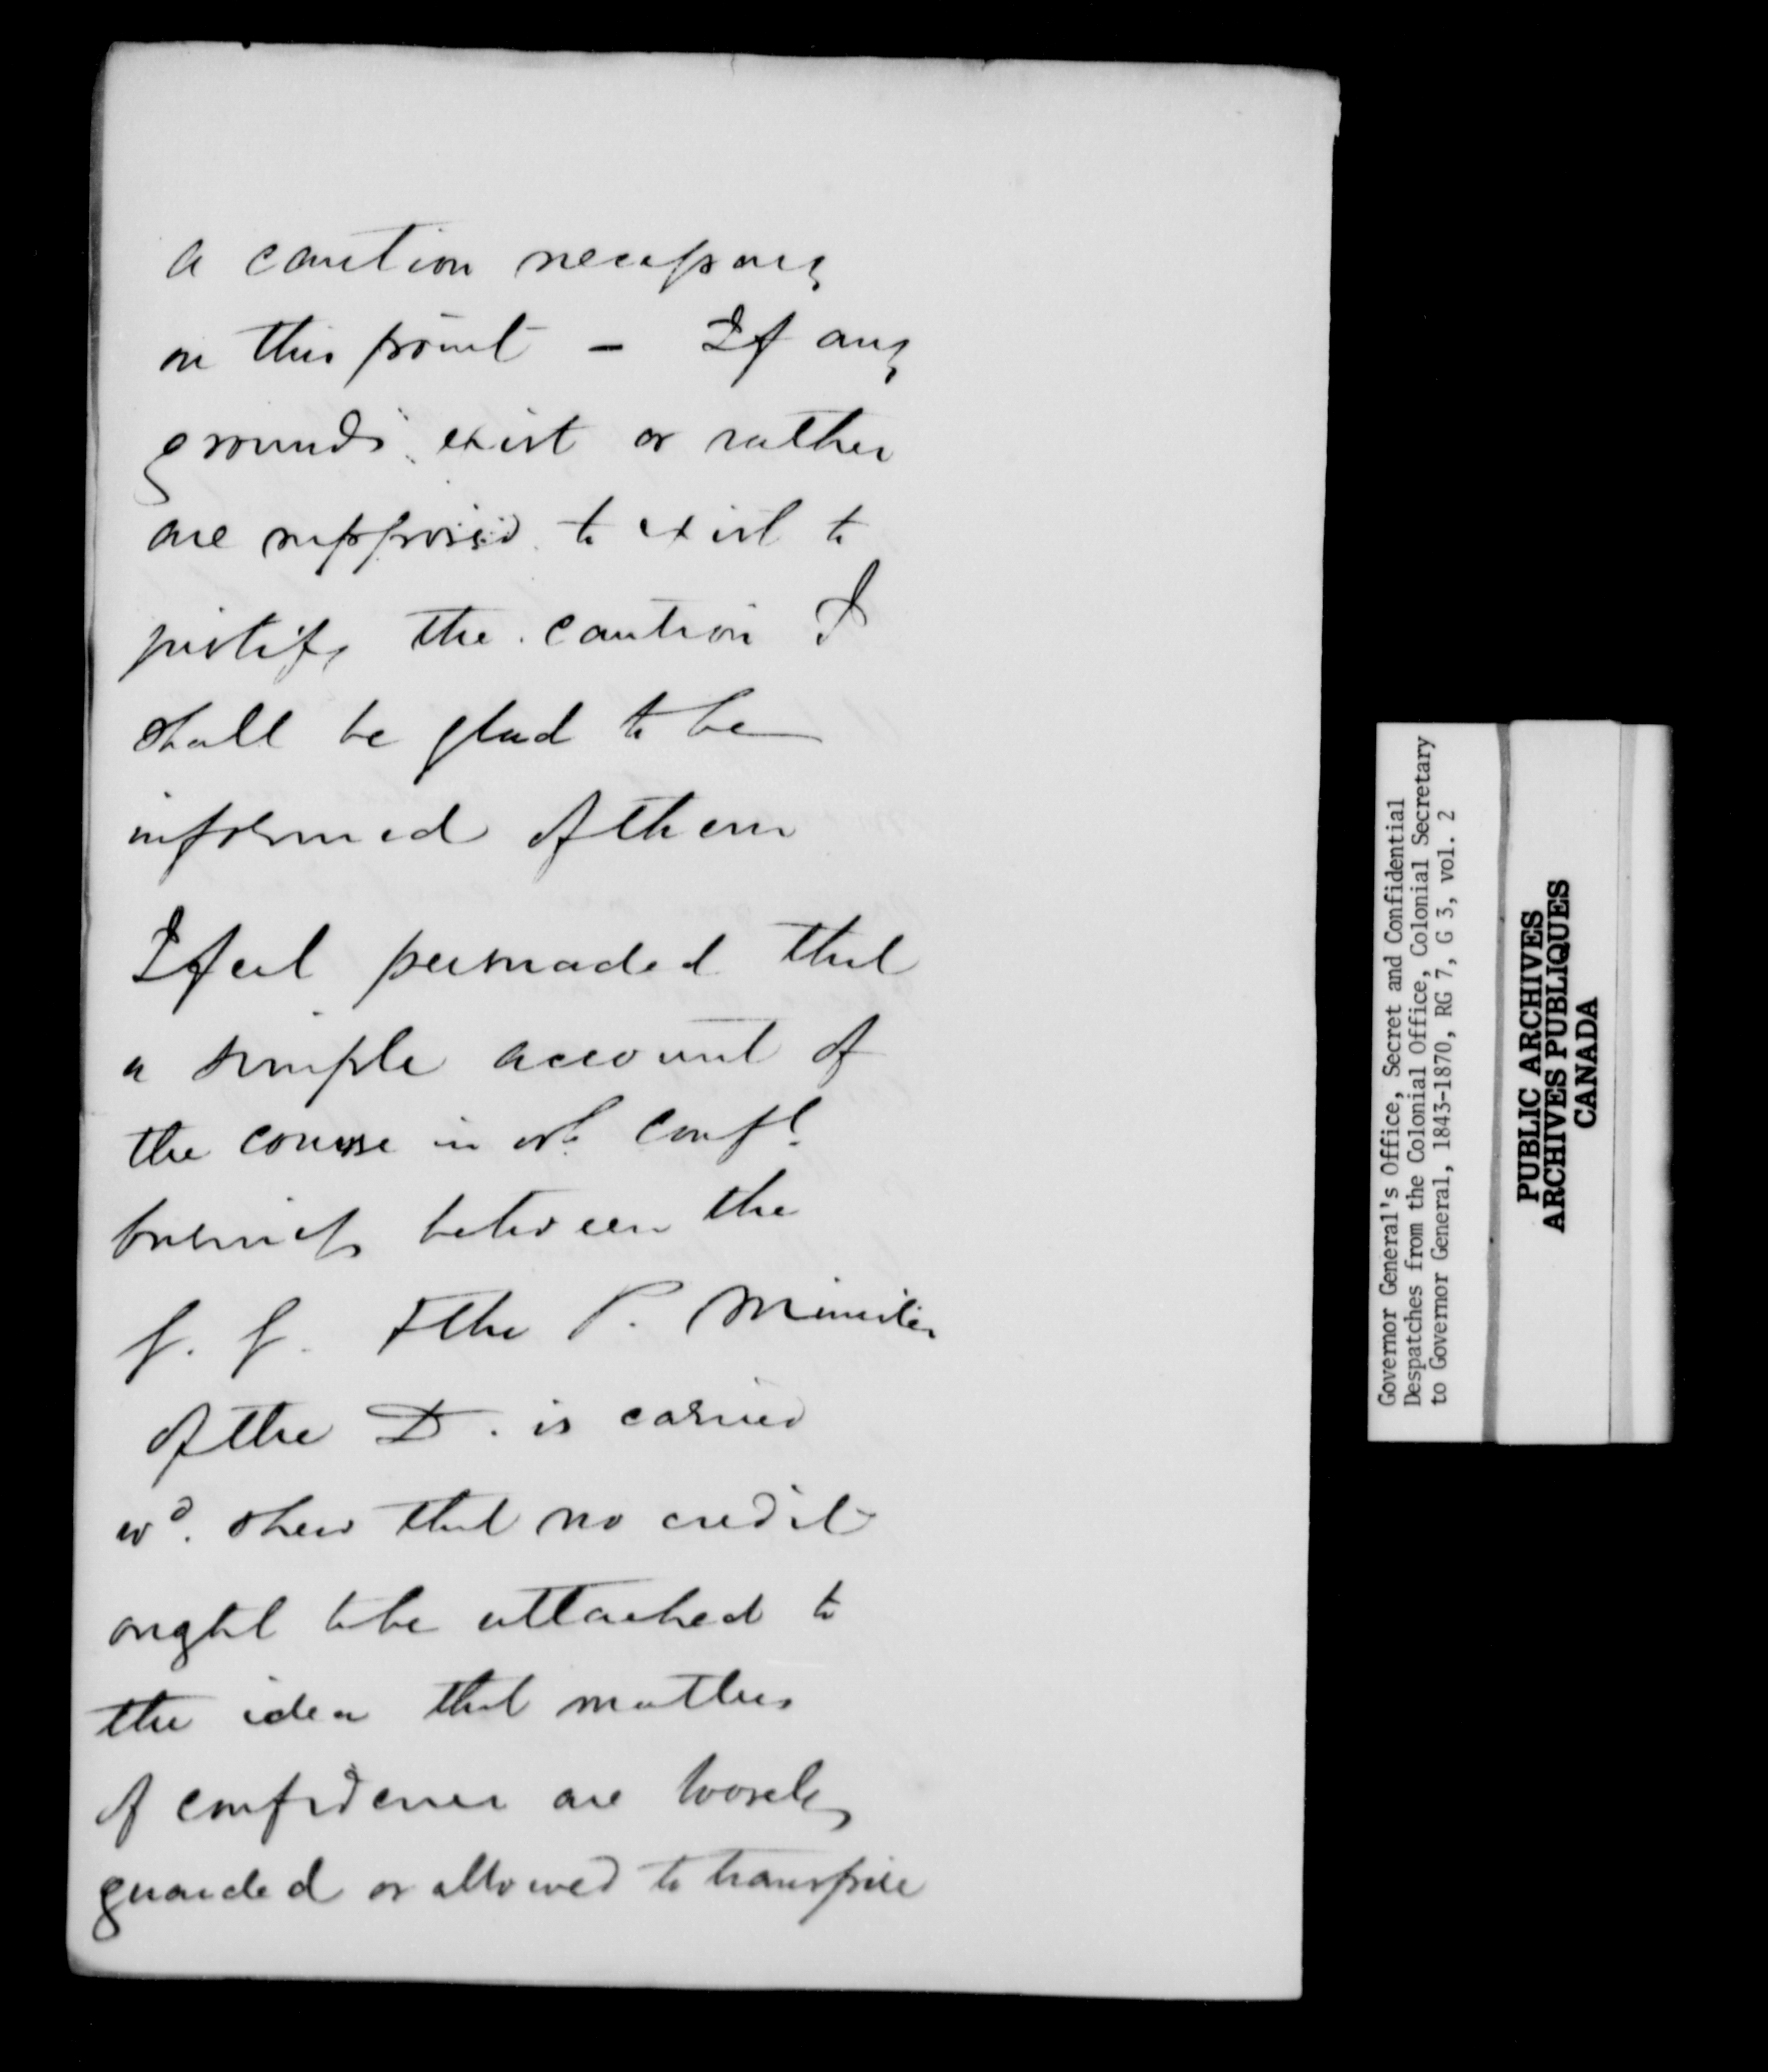 a caution necessary
on this point – If any
grounds exist or rather
are supposed to exist to
justify the caution I
shall be glad to be
informed of them
I feel persuaded that
a simple account of
the course in wh. confl.
business between the
G. G. & the P. Minister
of the D. is carried
wd. shew that no credit
ought to be attached to
the idea that matters
of confidence are loosely
guarded or allowed to transpire
Governor General's Office, Secret and Confidential
Despatches from the Colonial Office, Colonial Secretary
to Governor General, 1843-1870, RG 7, G 3, vol. 2
PUBLIC ARCHIVES
ARCHIVES PUBLIQUES
CANADA